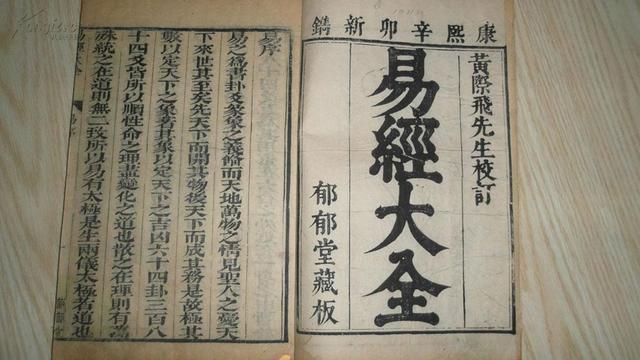 康熙辛卯新鐫
黃際飛先生校訂
易經大全
郁郁堂藏板
易序
易之爲書卦爻彖象之義備而天地萬物之情見聖人之憂天
下來世其至矣先天下而開其物後天下而成其務是故極其
數以定天下之象著其象以定天下之吉凶六十四卦三百八
十四爻皆所以順性命之理盡變化之道也散之在理則有萬
殊統之在道則無二致所以易有太極是生兩儀太極者道也
易經大全